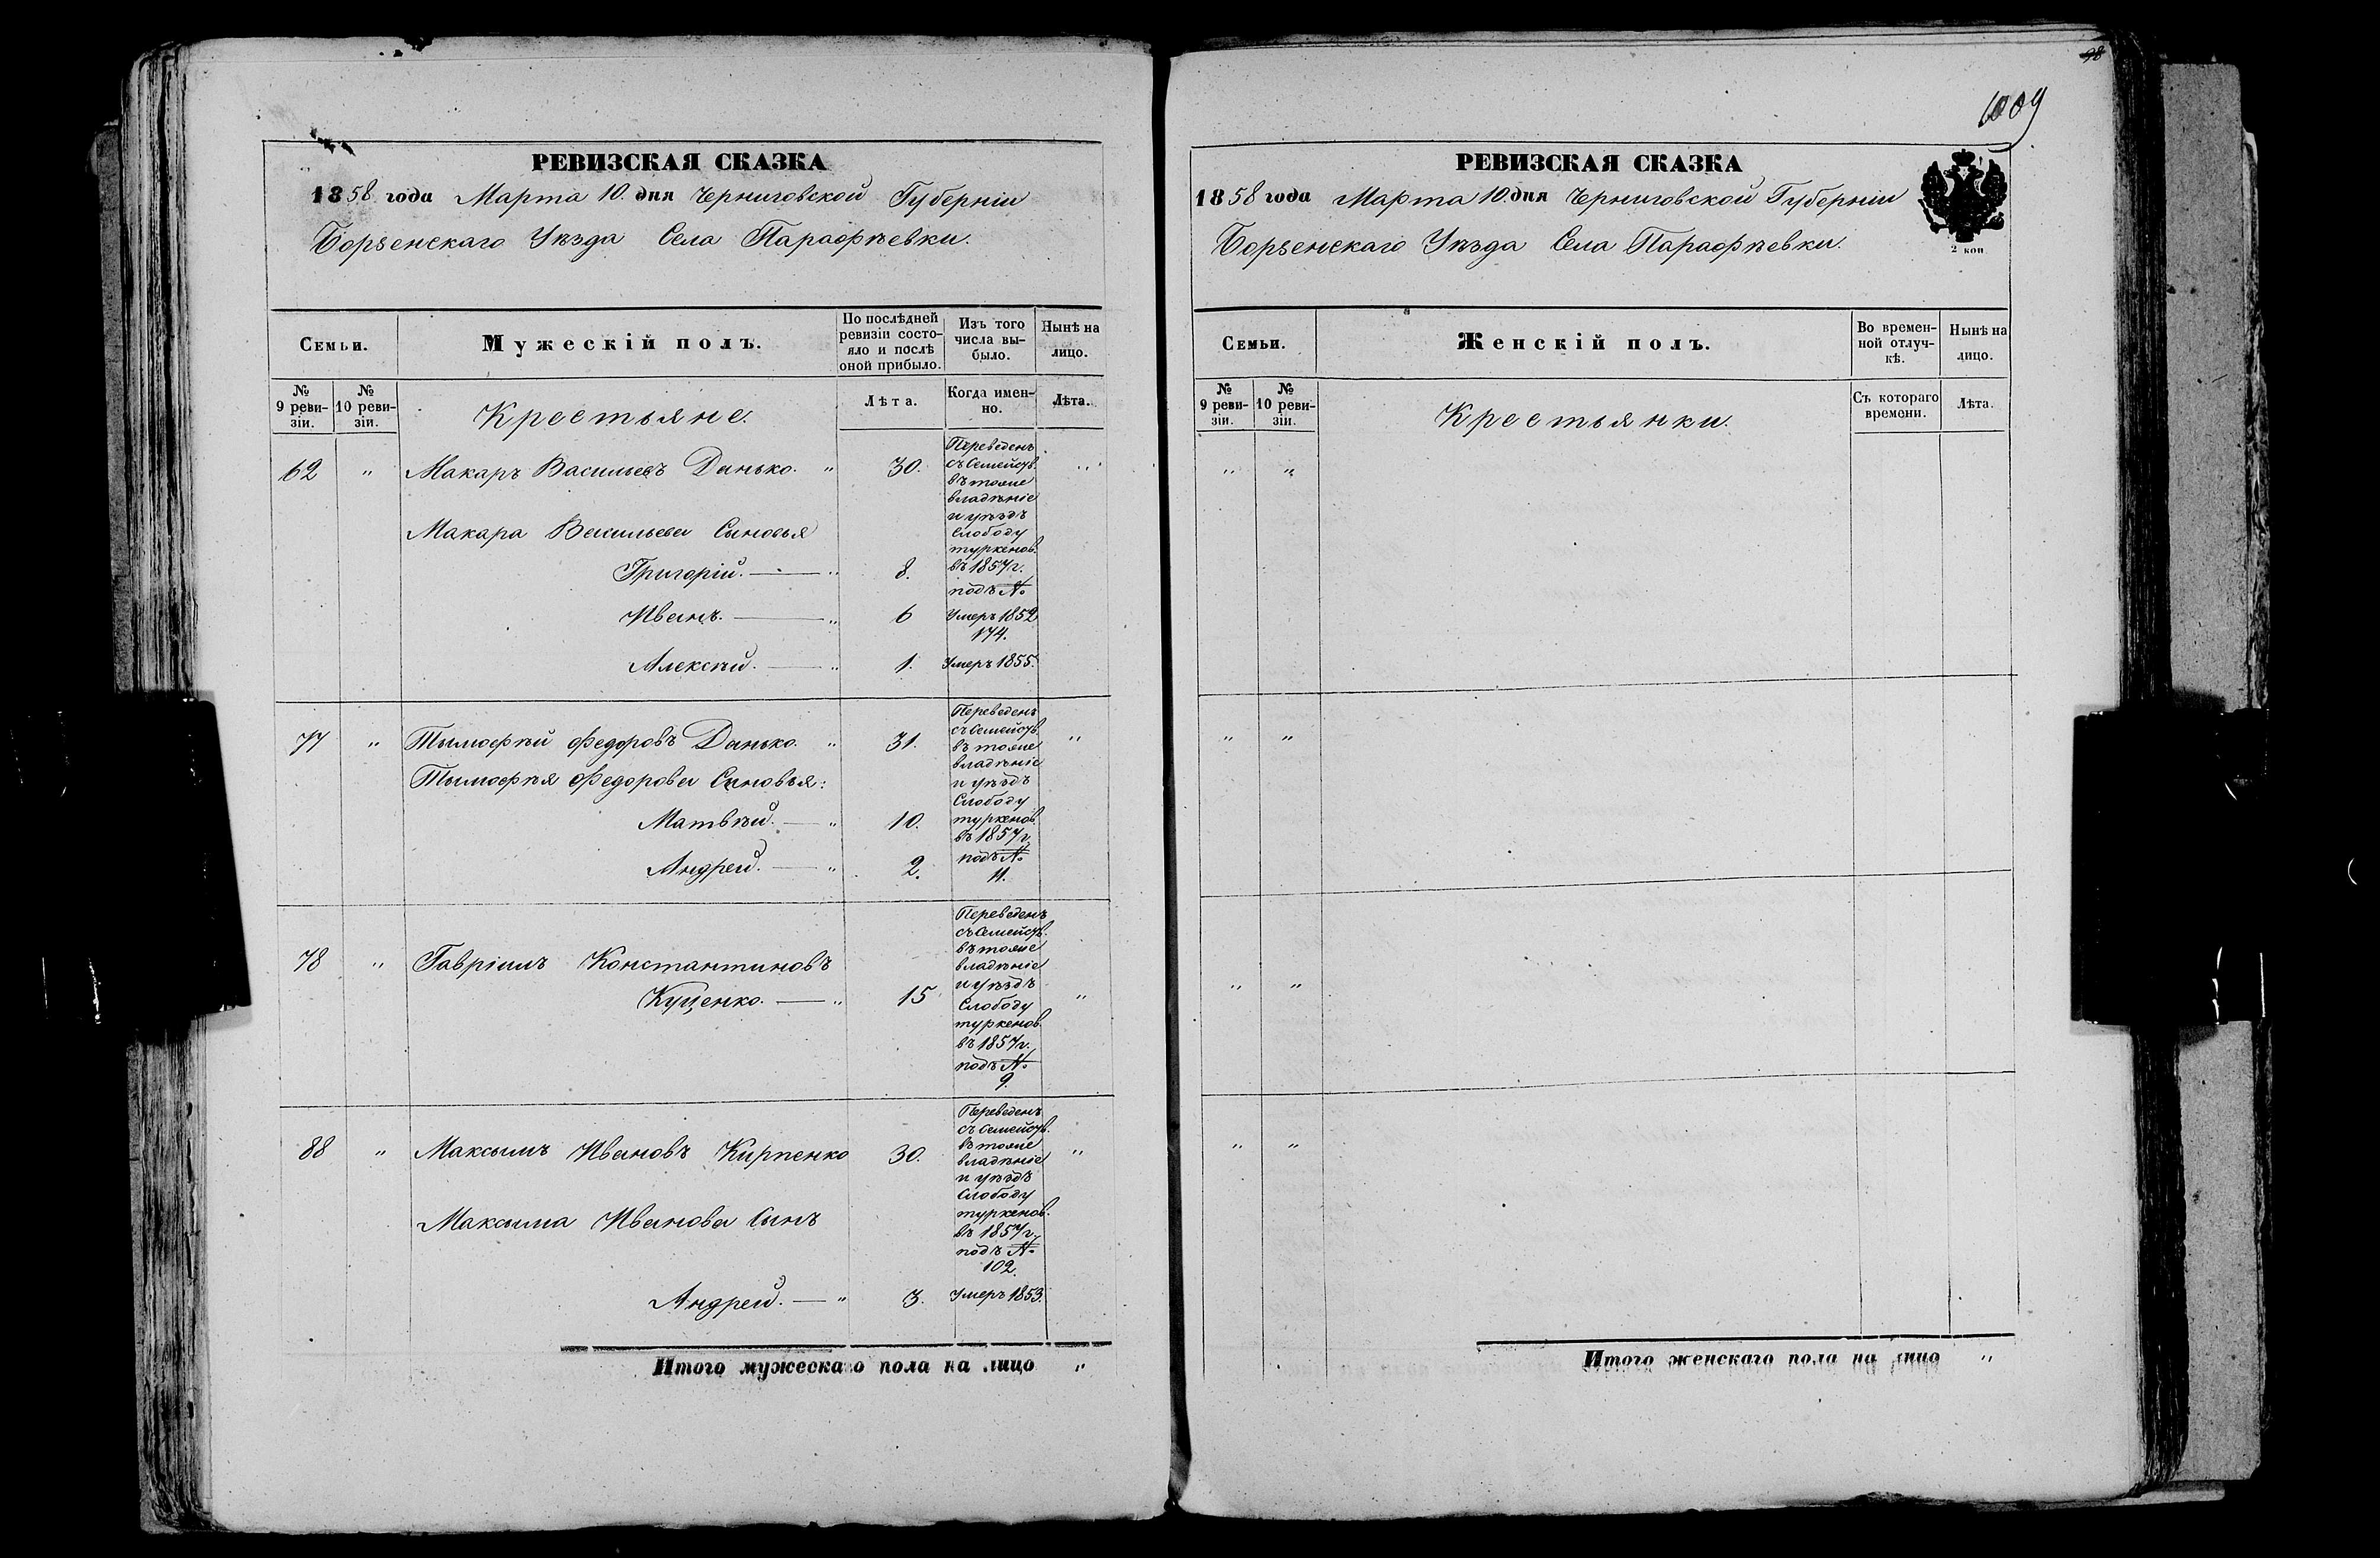 РЕВИЗСКАЯ СКАЗКА
1858 года Марта 10. дня Черниговской Губерніи
Борзенскаго Уѣзда Села Парафѣевки.
Семьи.
Мужескій полъ.
По послѣдней ревизіи состо-
яло и послѣ оной прибыло.
Изъ того числа вы-
было.
Нынѣ на лицо.
№ 9 реви-
зіи.
№ 10 реви-
зіи.
Крестьяне.
Лѣта.
Когда имен-
но.
Лѣта.
62 " Макаръ Васильевъ Данько. " 30. "
Переведенъ
съ Семейств.
въ тоже
владѣніе
и уѣздъ
Слободу
туркенов.
въ 1857 г.
подъ №
174.
Макара Васильева Сыновья
Григорій. — " 8.
Иванъ. — " 6 Умеръ 1852
Алексѣй. — " 1. Умеръ 1855.
77 " Тымофѣй Федоровъ Данько. " 31. "
Переведенъ
съ Семейств.
въ тоже
владѣніе
и уѣздъ
Слободу
туркенов.
въ 1857 г.
подъ №
11.
Тымофѣя Федорова Сыновья:
Матвѣй. — " 10.
Андрей. — " 2.
78 " Гавріилъ Константиновъ
Куценко. — " 15 "
Переведенъ
съ Семейств.
въ тоже
владѣніе
и уѣздъ
Слободу
туркенов.
въ 1857 г.
подъ №
9.
88 " Максымъ Ивановъ Кирпенко 30. "
Переведенъ
съ Семейств.
въ тоже
владѣніе
и уѣздъ
Слободу
туркенов.
въ 1857 г.
подъ №
102.
Максыма Иванова Сынъ
Андрей. — " 3. Умеръ 1853.
Итого мужескаго пола на лицо "
98
1009
РЕВИЗСКАЯ СКАЗКА
1858 года Марта 10. дня Черниговской Губерніи
Борзенскаго Уѣзда Села Парафѣевки.
2 коп
Семьи.
Женскій полъ.
Во времен-
ной отлуч-
кѣ.
Нынѣ на лицо.
№ 9 реви-
зіи.
№ 10 реви-
зіи.
Крестьянки.
Съ котораго времени.
Лѣта.
" "
" "
" "
" "
Итого женскаго пола на лицо "